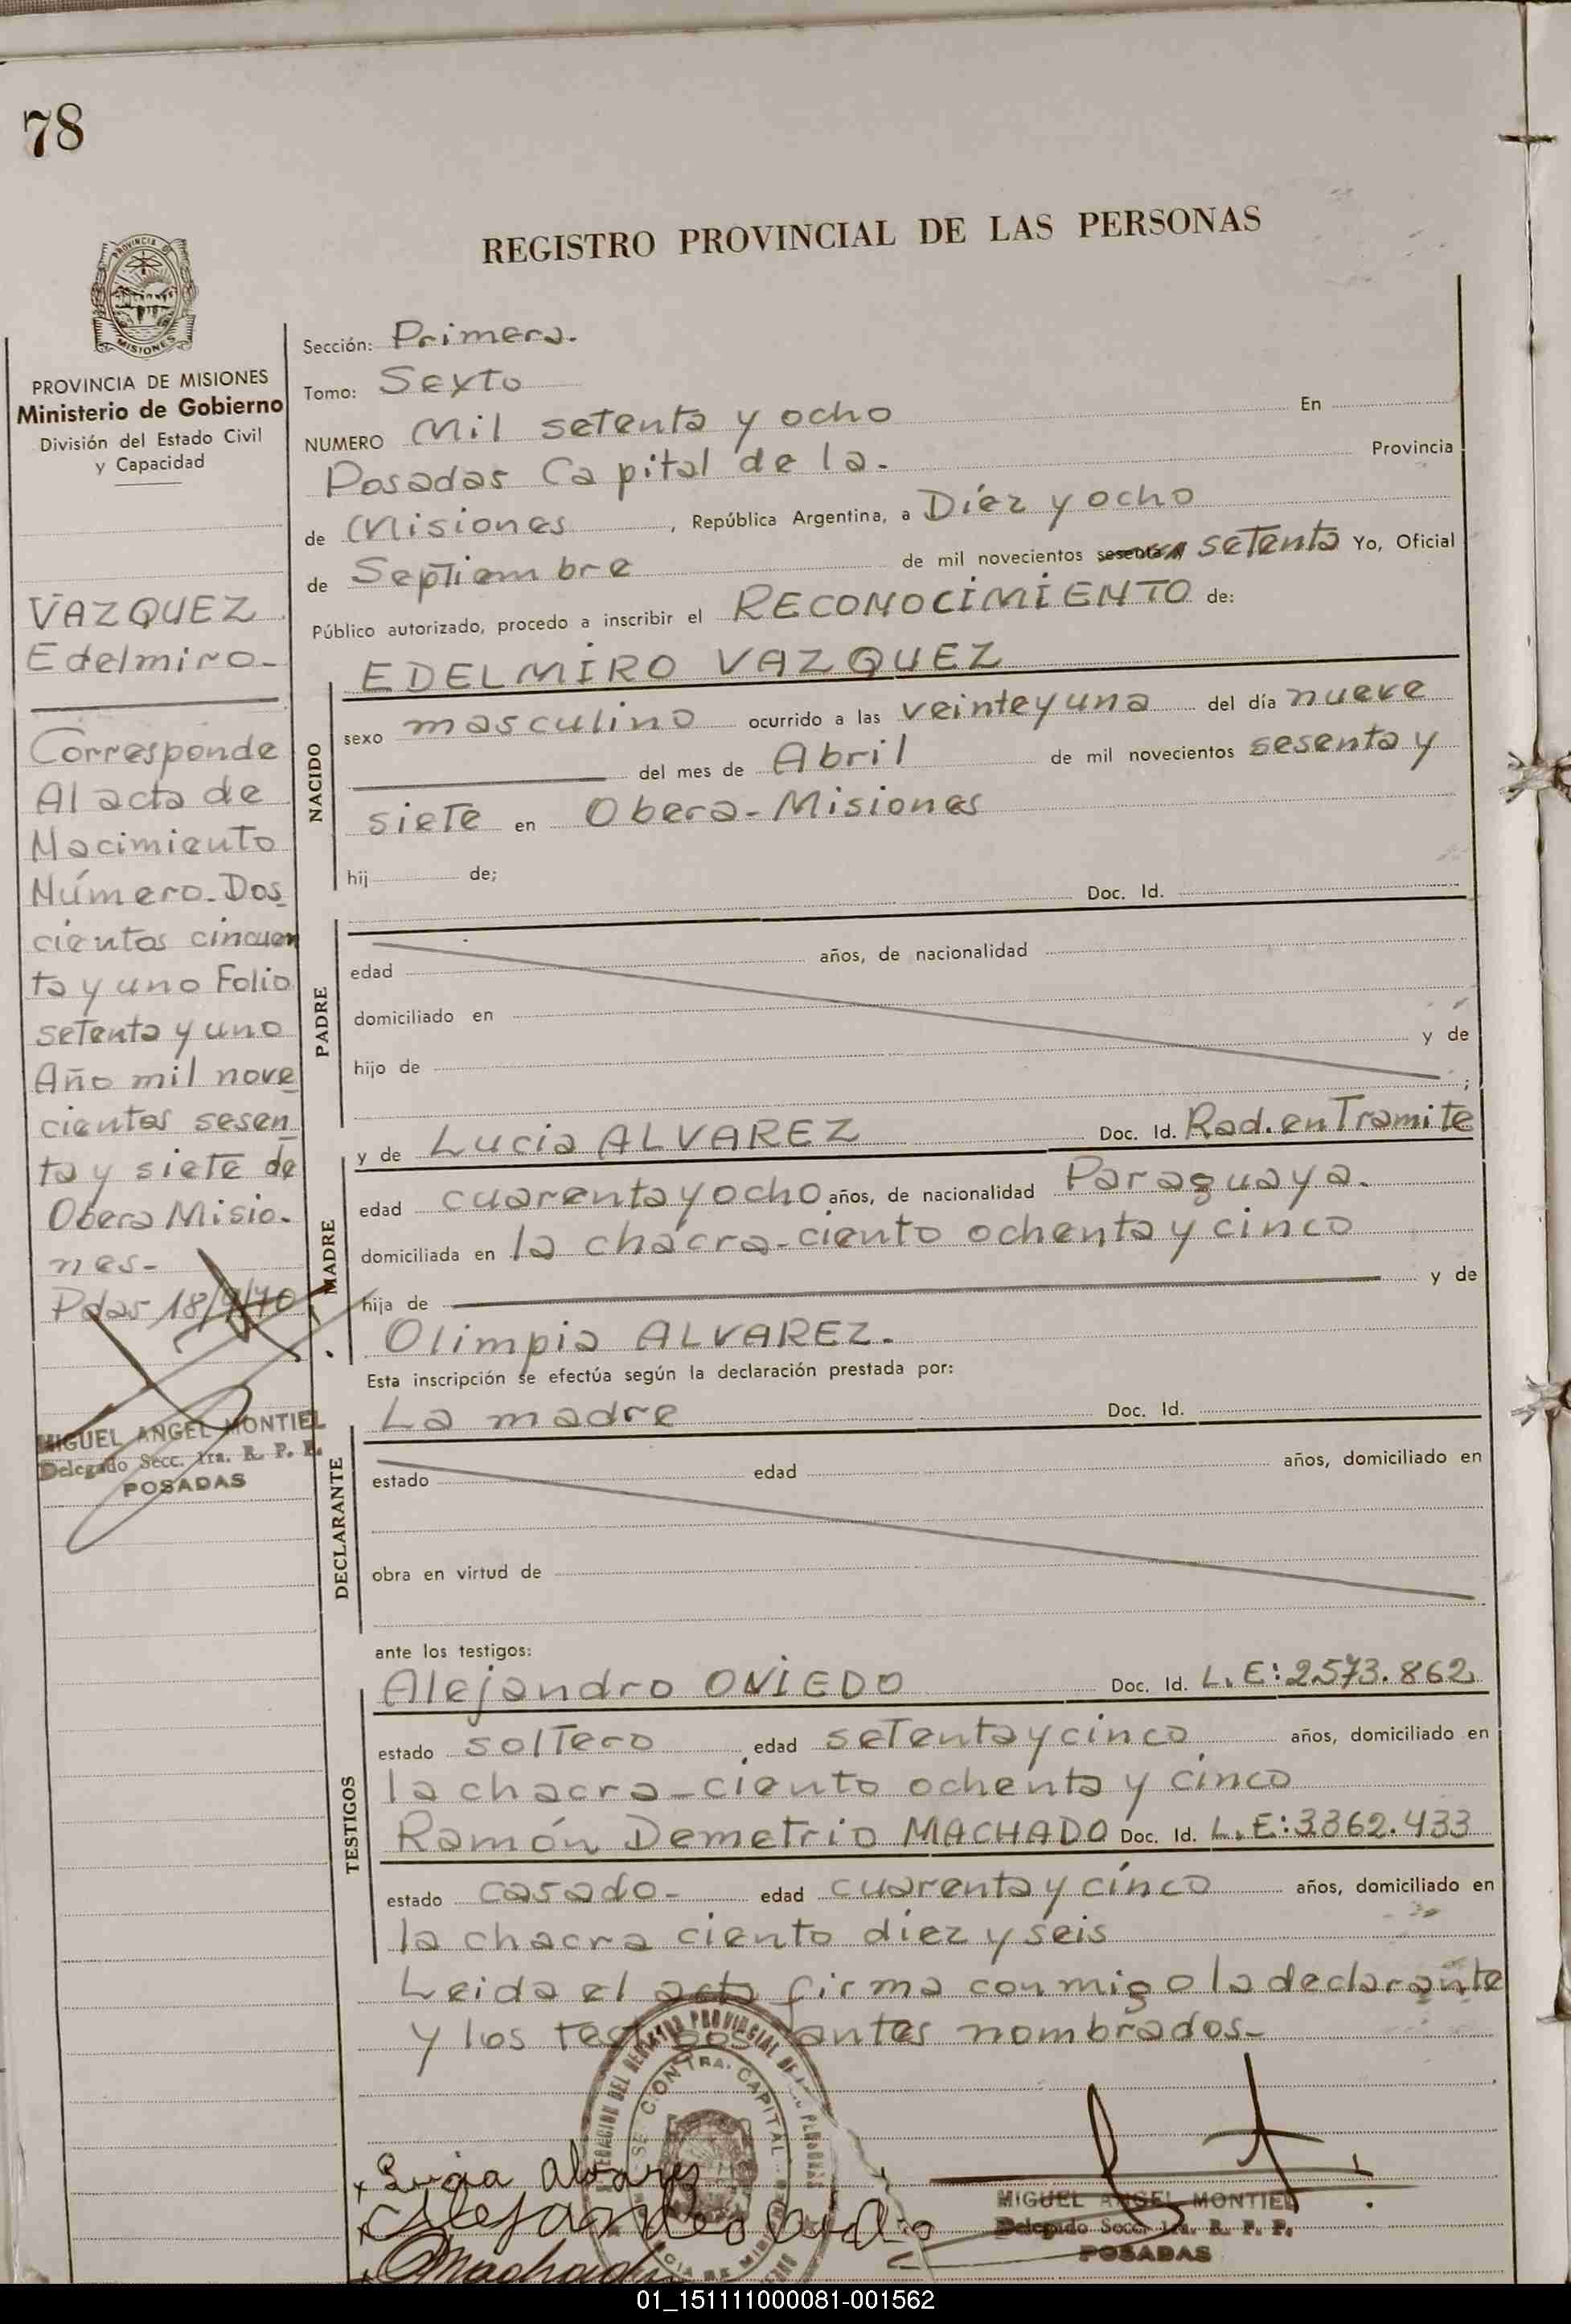 78
REGISTRO PROVINCIAL DE LAS PERSONAS
PROVINCIA DE MISIONES
PROVINCIA DE MISIONES
Ministerio de Gobierno
División del Estado Civil
y Capacidad
VAZQUEZ
Edelmiro-
Corresponde
Al acta de
Nacimiento
Número-Dos
cientos cincuen
ta y uno Folio
setenta y uno
Año mil nove
cientos sesen
ta y siete de
Obera Misio-
nes-
Pdas 18/9/70
MIGUEL ANGEL MONTIEL
Delegado Secc. 1ra. R. P. P.
POSADAS
Sección: Primera.
Tomo: Sexto
NUMERO Mil setenta y ocho En
Posadas Capital de la. Provincia
de Misiones, República Argentina, a Diez y ocho
de Septiembre de mil novecientos sesenta setenta Yo, Oficial
Público autorizado, procedo a inscribir el RECONOCIMIENTO de:
EDELMIRO VAZQUEZ
NACIDO
sexo masculino ocurrido a las veinte y una del día nueve
del mes de Abril de mil novecientos sesenta y
siete en Obera-Misiones
hij de;
Doc. Id.
PADRE
edad años, de nacionalidad
domiciliado en
hijo de y de
;
y de Lucia ALVAREZ Doc. Id. Rad. en Tramite
MADRE
edad cuarenta y ocho años, de nacionalidad Paraguaya.
domiciliada en la chacra-ciento ochenta y cinco
hija de y de
Olimpia ALVAREZ.
Esta inscripción se efectúa según la declaración prestada por:
La madre Doc. Id.
DECLARANTE
estado edad años, domiciliado en
obra en virtud de
ante los testigos:
Alejandro OVIEDO Doc. Id. L.E:2573.862
TESTIGOS
estado soltero edad setenta y cinco años, domiciliado en
la chacra-ciento ochenta y cinco
Ramón Demetrio MACHADO Doc. Id. L.E:3362.433
estado casado- edad cuarenta y cinco años, domiciliado en
la chacra ciento diez y seis
Leida el acta firma conmigo la declarante
y los testigos antes nombrados-
DEL REGISTRO PROVINCIAL DE
CAPITAL
Lucia Alvarez
Alejandro Oviedo
Machado
MIGUEL ANGEL MONTIEL
Delegado Secc. 1ra. R. P. P.
POSADAS
01_151111000081-001562